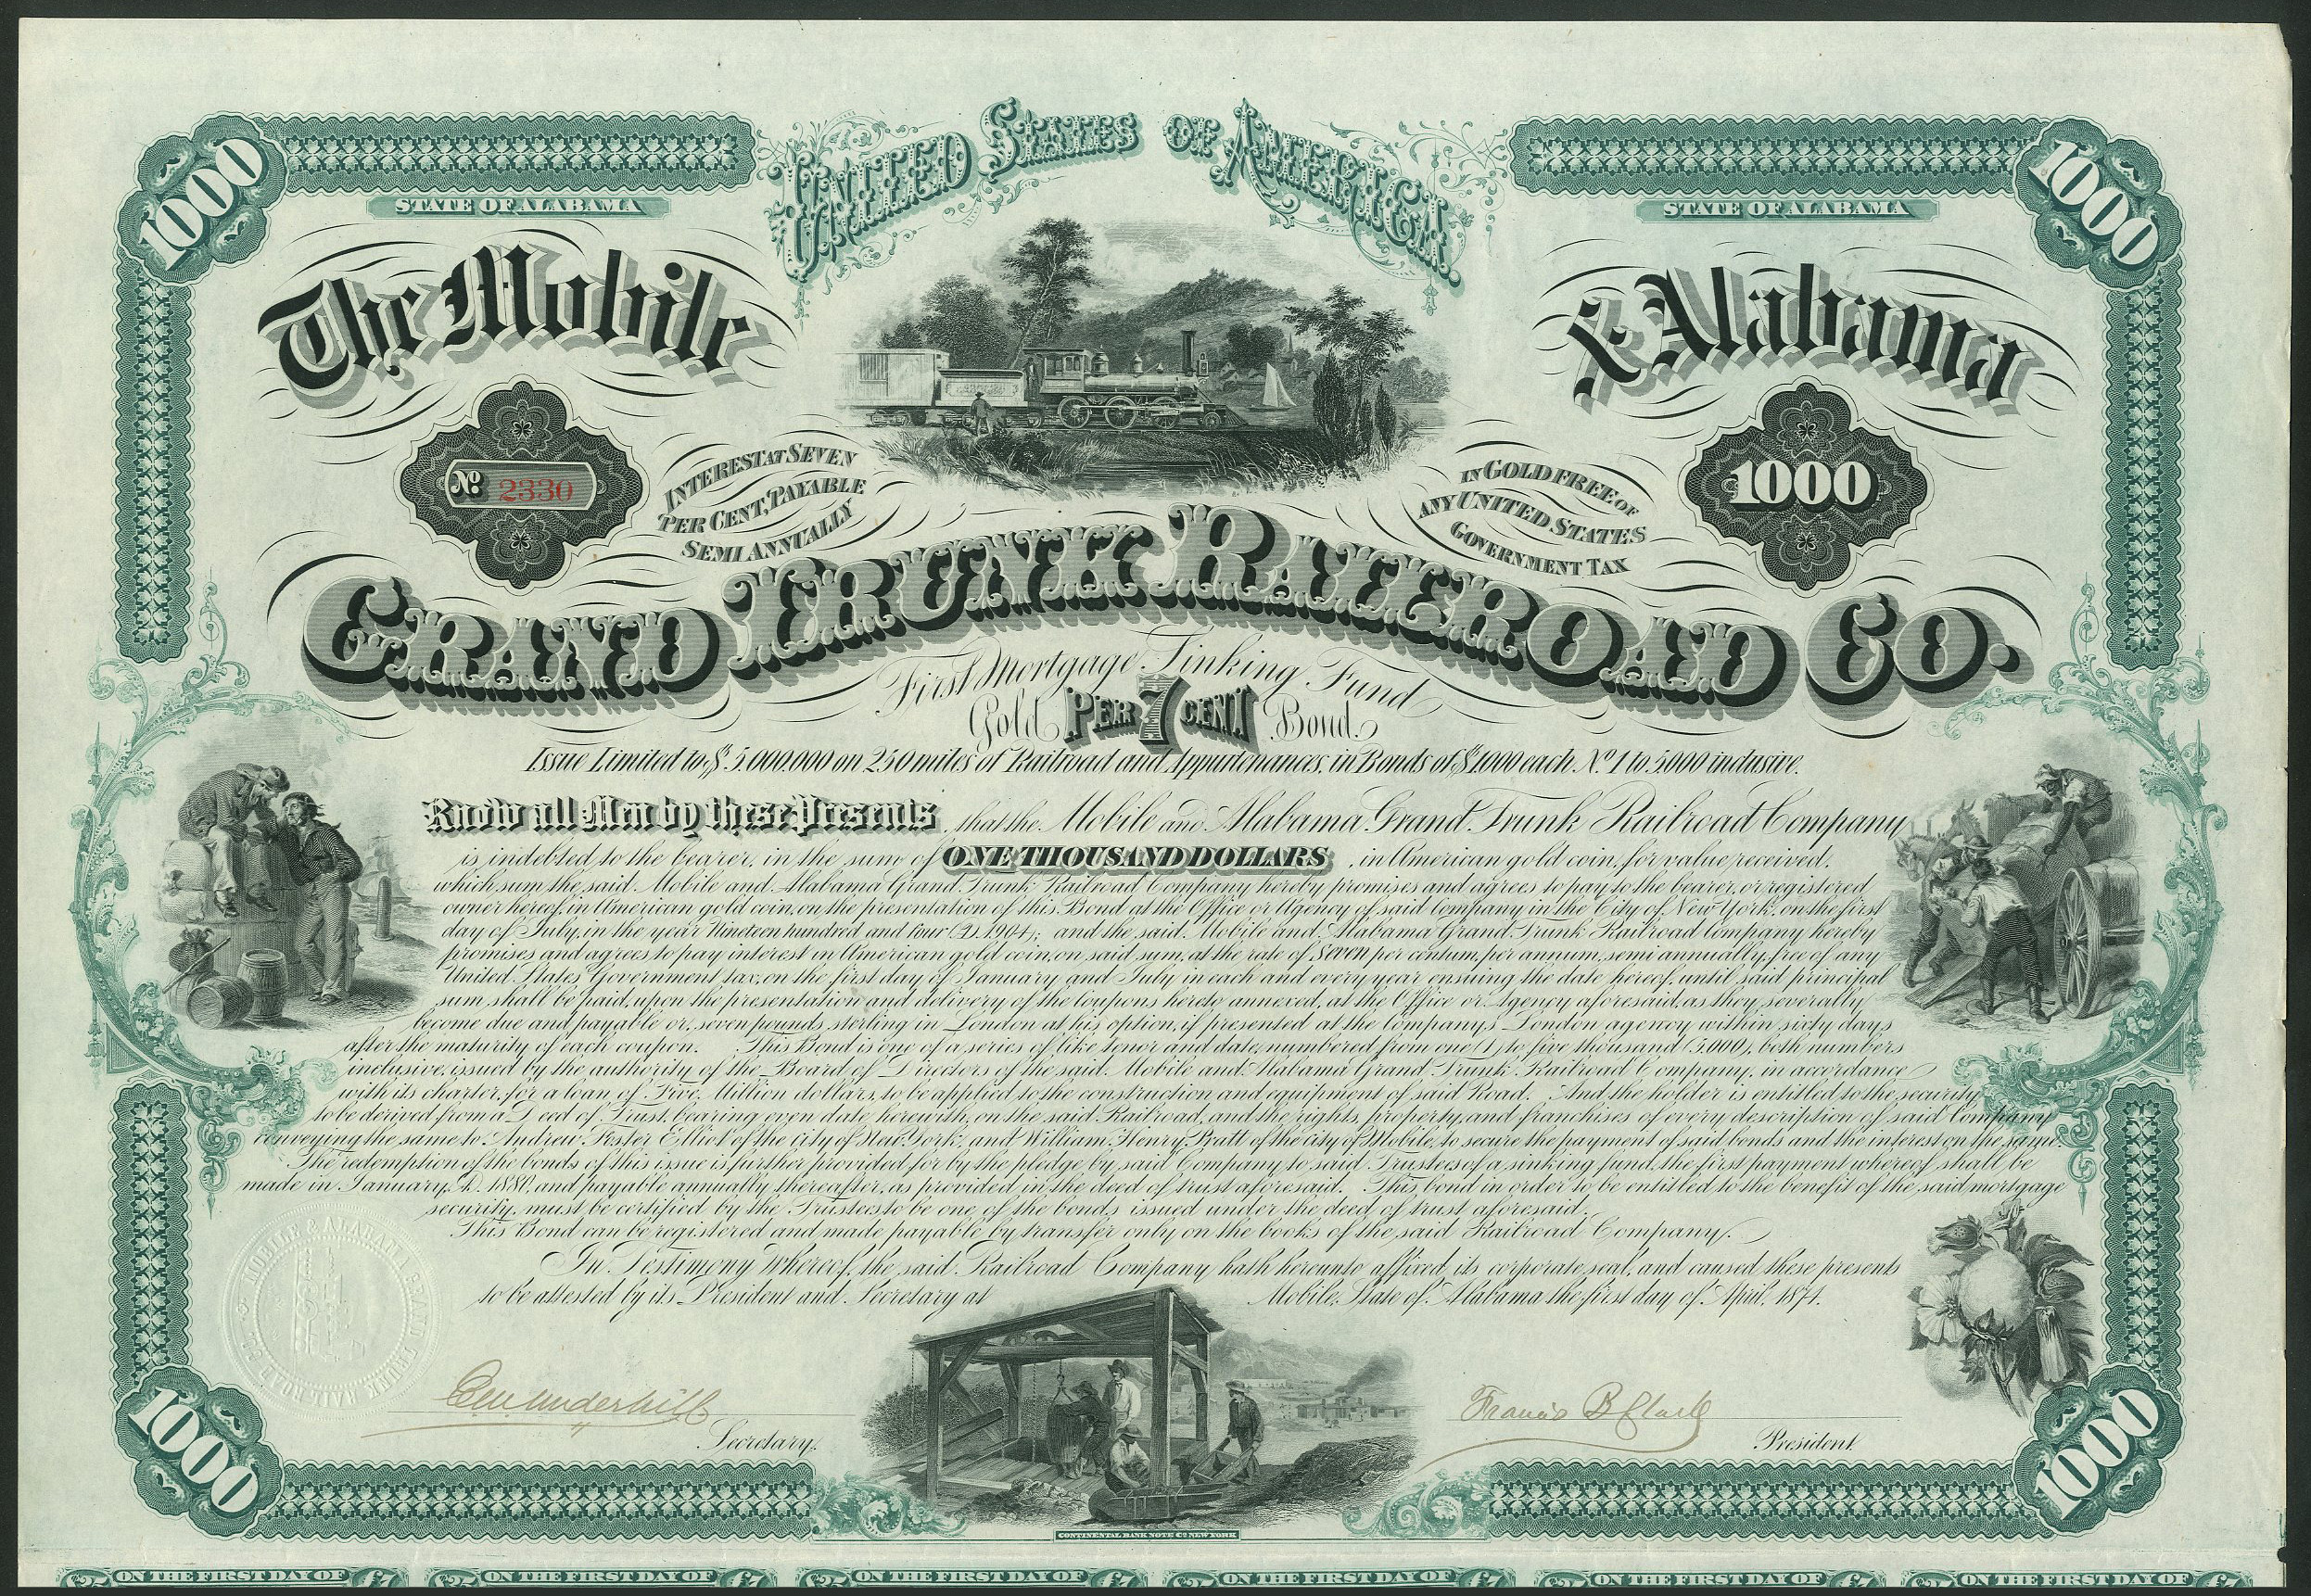 UNITED STATES OF AMERICA
1000
1000
STATE OF ALABAMA
STATE OF ALABAMA
The Mobile
& Alabama
No 2330
INTEREST AT SEVEN
PER CENT, PAYABLE
SEMI ANNUALLY
IN GOLD FREE OF
ANY UNITED STATES
GOVERNMENT TAX
1000
GRAND TRUNK RAILROAD CO.
First Mortgage Sinking Fund
Gold 7 PER CENT Bond.
Issue Limited to $5.000.000 on 250 miles of Railroad and Appurtenances, in Bonds of $1000 each. No 1 to 5000 inclusive.
Know all Men by these Presents, that the Mobile and Alabama Grand Trunk Railroad Company
is indebted to the bearer, in the sum of ONE THOUSAND DOLLARS, in American gold coin, for value received,
which sum the said Mobile and Alabama Grand Trunk Railroad Company hereby promises and agrees to pay to the bearer, or registered
owner hereof, in American gold coin, on the presentation of this Bond at the Office or Agency of said Company in the City of New York, on the first
day of July, in the year Nineteen hundred and four (A.D. 1904); and the said Mobile and Alabama Grand Trunk Railroad Company hereby
promises and agrees to pay interest in American gold coin, on said sum, at the rate of Seven per centum, per annum, semi annually, free of any
United States Government tax, on the first day of January and July in each and every year ensuing the date hereof, until said principal
sum shall be paid, upon the presentation and delivery of the Coupons hereto annexed, at the Office or Agency aforesaid, as they severally
become due and payable or, seven pounds sterling in London at his option, if presented at the Company's London agency within sixty days
after the maturity of each coupon. This Bond is one of a series of like tenor and date, numbered from one (1) to five thousand (5.000), both numbers
inclusive, issued by the authority of the Board of Directors of the said Mobile and Alabama Grand Trunk Railroad Company, in accordance
with its charter, for a loan of Five Million dollars, to be applied to the construction and equipment of said Road. And the holder is entitled to the security
to be derived from a Deed of Trust, bearing even date herewith, on the said Railroad, and the rights, property, and franchises of every description of said Company
conveying the same to Andrew Foster Elliot of the city of New York, and William Henry Pratt of the city of Mobile, to secure the payment of said bonds and the interest on the same.
The redemption of the bonds of this issue is further provided for by the pledge by said Company to said Trustees of a sinking fund, the first payment whereof shall be
made in January A.D. 1880, and payable annually thereafter, as provided in the deed of trust aforesaid. This bond in order to be entitled to the benefit of the said mortgage
security, must be certified by the Trustees to be one of the bonds issued under the deed of trust aforesaid.
This Bond can be registered and made payable by transfer only on the books of the said Railroad Company.
In Testimony Whereof, the said Railroad Company hath hereunto affixed its corporate seal, and caused these presents
to be attested by its President and Secretary at Mobile, State of Alabama the first day of April, 1874.
MOBILE & ALABAMA GRAND TRUNK RAILROAD CO.
Underhill
Secretary.
Francis B. Clark
President.
1000
1000
CONTINENTAL BANK NOTE Co NEW YORK
ON THE FIRST DAY OF £7
ON THE FIRST DAY OF £7
ON THE FIRST DAY OF £7
ON THE FIRST DAY OF £7
ON THE FIRST DAY OF £7
ON THE FIRST DAY OF £7